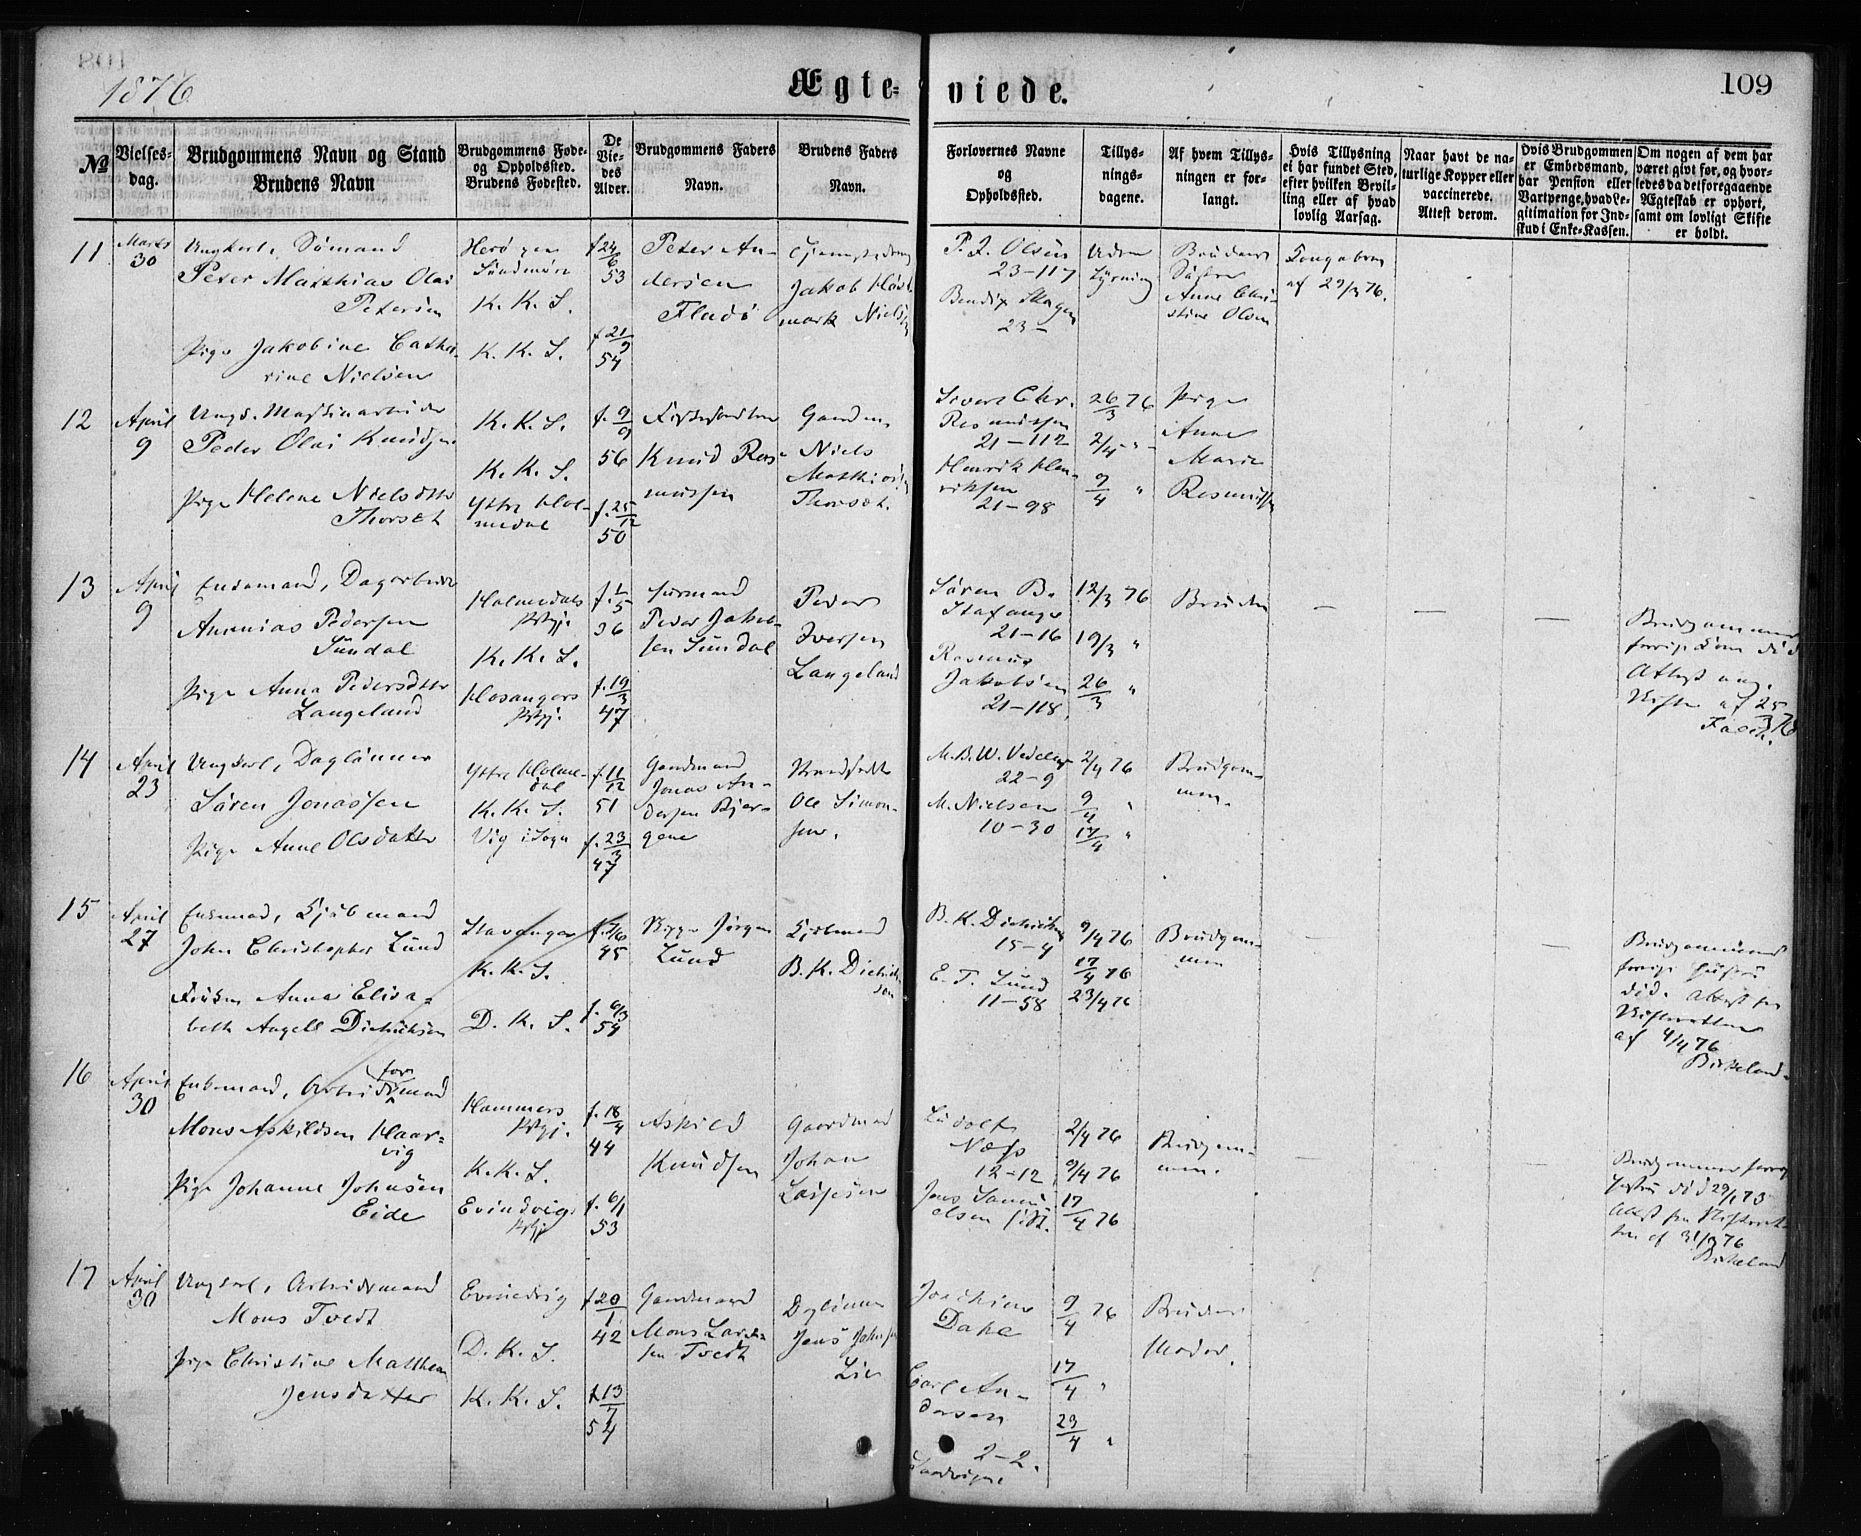 1876
Ægte-viede.
109
No
Vielses-dag.
Brudgommens Navn og Stand
Brudens Navn
Brudgommens Føde- og Opholdssted.
Brudens Fødested.
De Viedes Alder.
Brudgommens Faders Navn.
Brudens Faders Navn.
Forlovernes Navne og Opholdssted.
Tillysningsdagene.
Af hvem Tillysningen er forlangt.
Hvis Tillysning ei har fundet Sted, efter hvilken Bevilling eller af hvad lovlig Aarsag.
Naar havt de naturlige Kopper eller vaccinerede. Attest derom.
Hvis Brudgommen er Embedsmand, har Pension eller Vartpenge, hvad Legitimation for Indskud i Enke-Kassen.
Om nogen af dem har været givt før, og hvorledes da det foregaaende Ægteskab er ophørt, samt om lovligt Skifte er holdt.
11
Marts 30
Ungkarl, Sømand
Peter Matthias Olai
Petersen
Pige Jakobine Catha-
rine Nielsen
Herø
Søndmøre
K. K. S.
K. K. S.
f 24/6 53
f 21/9 54
Peter An-
dersen
Flusø
Jakob
mark Nielsen
P. J. Olsen
23-117
Bendix Skagen
23-
Uden
Lysning
Brudens
Søster
Anne Chri-
stine Olsen
af 29/3 76.
12
April 9
Ungk. Maskinarbeider
Peder Olai Knudsen
Pige Helene Nielsdtter
Thorset
K. K. S.
K. K. S.
Yttre Hol-
medal
f. 9/9 56
f. 25/12 50
Knud Ras-
mussen
Gaardm.
Niels
Thorset.
Sivert Chr.
Rasmussen
21-112
Henrik Hen-
riksen
21-98
26/3 76
2/4 "
9/4 "
Pige
Anne
Marie
Rasmussen
13
April 9
Enkemand, Dagarbeider
Ananias Pedersen
Sundal
Pige Anna Pedersdtter
Langeland
Holmedals
Prstgj.
K. K. S.
Hosangers
Prstgj.
f. 1/5 36
f. 19/3 47
Peder Jakob-
sen Sundal
Peder
Iversen
Langeland
Søren B.
Stafanger
21-16
Rasmus
Jakobsen
21-118
12/3 76
19/3 "
26/3 "
Bruden
Brudgommens
forrige Kone død
Attest ang.
Skifte af 25/3 76
14
April 23
Ungkarl, Daglønner
Søren Jonassen
Pige Anne Olsdatter
Yttre Holme-
dal
K. K. S.
Vig i Sogn
f. 11/12 51
f. 23/3 47
Gaardmand
Jonas An-
dersen Bjer-
gene
Ole Simon-
sen.
M. B. W. Vedeler
22-9
M. Nielsen
10-30
2/4 76
9/4 "
17/4 "
Brudgom-
men.
15
April 27
Enkemand, Kjøbmand
John Christopher Lund
Frøken Anna Elisa-
beth Angell Dietrichson
Stavanger
K. K. S.
D. K. S.
45
f. 6/3 54
Jørgen
Lund
Kjøbmand
B. K. Dietrich-
son
B. K. Dietrichson
15-4
E. T. Lund
11-58
9/4 76
17/4 76
23/4 76
Brudgom-
men
Brudgommens
forrige Hustru
død. Attest fra
Skifteretten
af 4/4 76
Birkeland.
16
April 30
Enkemand, Arbeidsfor-
mand
Mons Askildsen Haar-
vig
Pige Johanne Johnsen
Eide
Hammers
Prstgj.
K. K. S.
Evindvigs
Prstgj.
f. 18/4 44
f. 6/1 53
Askild
Knudsen
Gaardmand
Johan
Lassesen
Ludolf
Næss
12-12
Jens Samu-
elsen
2/4 76
9/4 76
17/4 76
Brudgom-
men.
Brudgommens forrige
Hustru død 29/1 73
Attest fra Skifteret-
ten af 31/3 76
Birkeland
17
April 30
Ungkarl, Arbeidsmand
Mons Tvedt
Pige Christine Matthea
Jensdatter
Evindvig
D. K. S.
K. K. S.
f 20/1 42
f 13/7 54
Gaardmand
Mons Lar-
sen Tvedt
Daglønner
Jens Johnsen
Lie
Joachim
Dahl
Carl An-
dersen
2-2.
Sandvigen
9/4 76
17/4 "
23/4 "
Brudens
Moder.